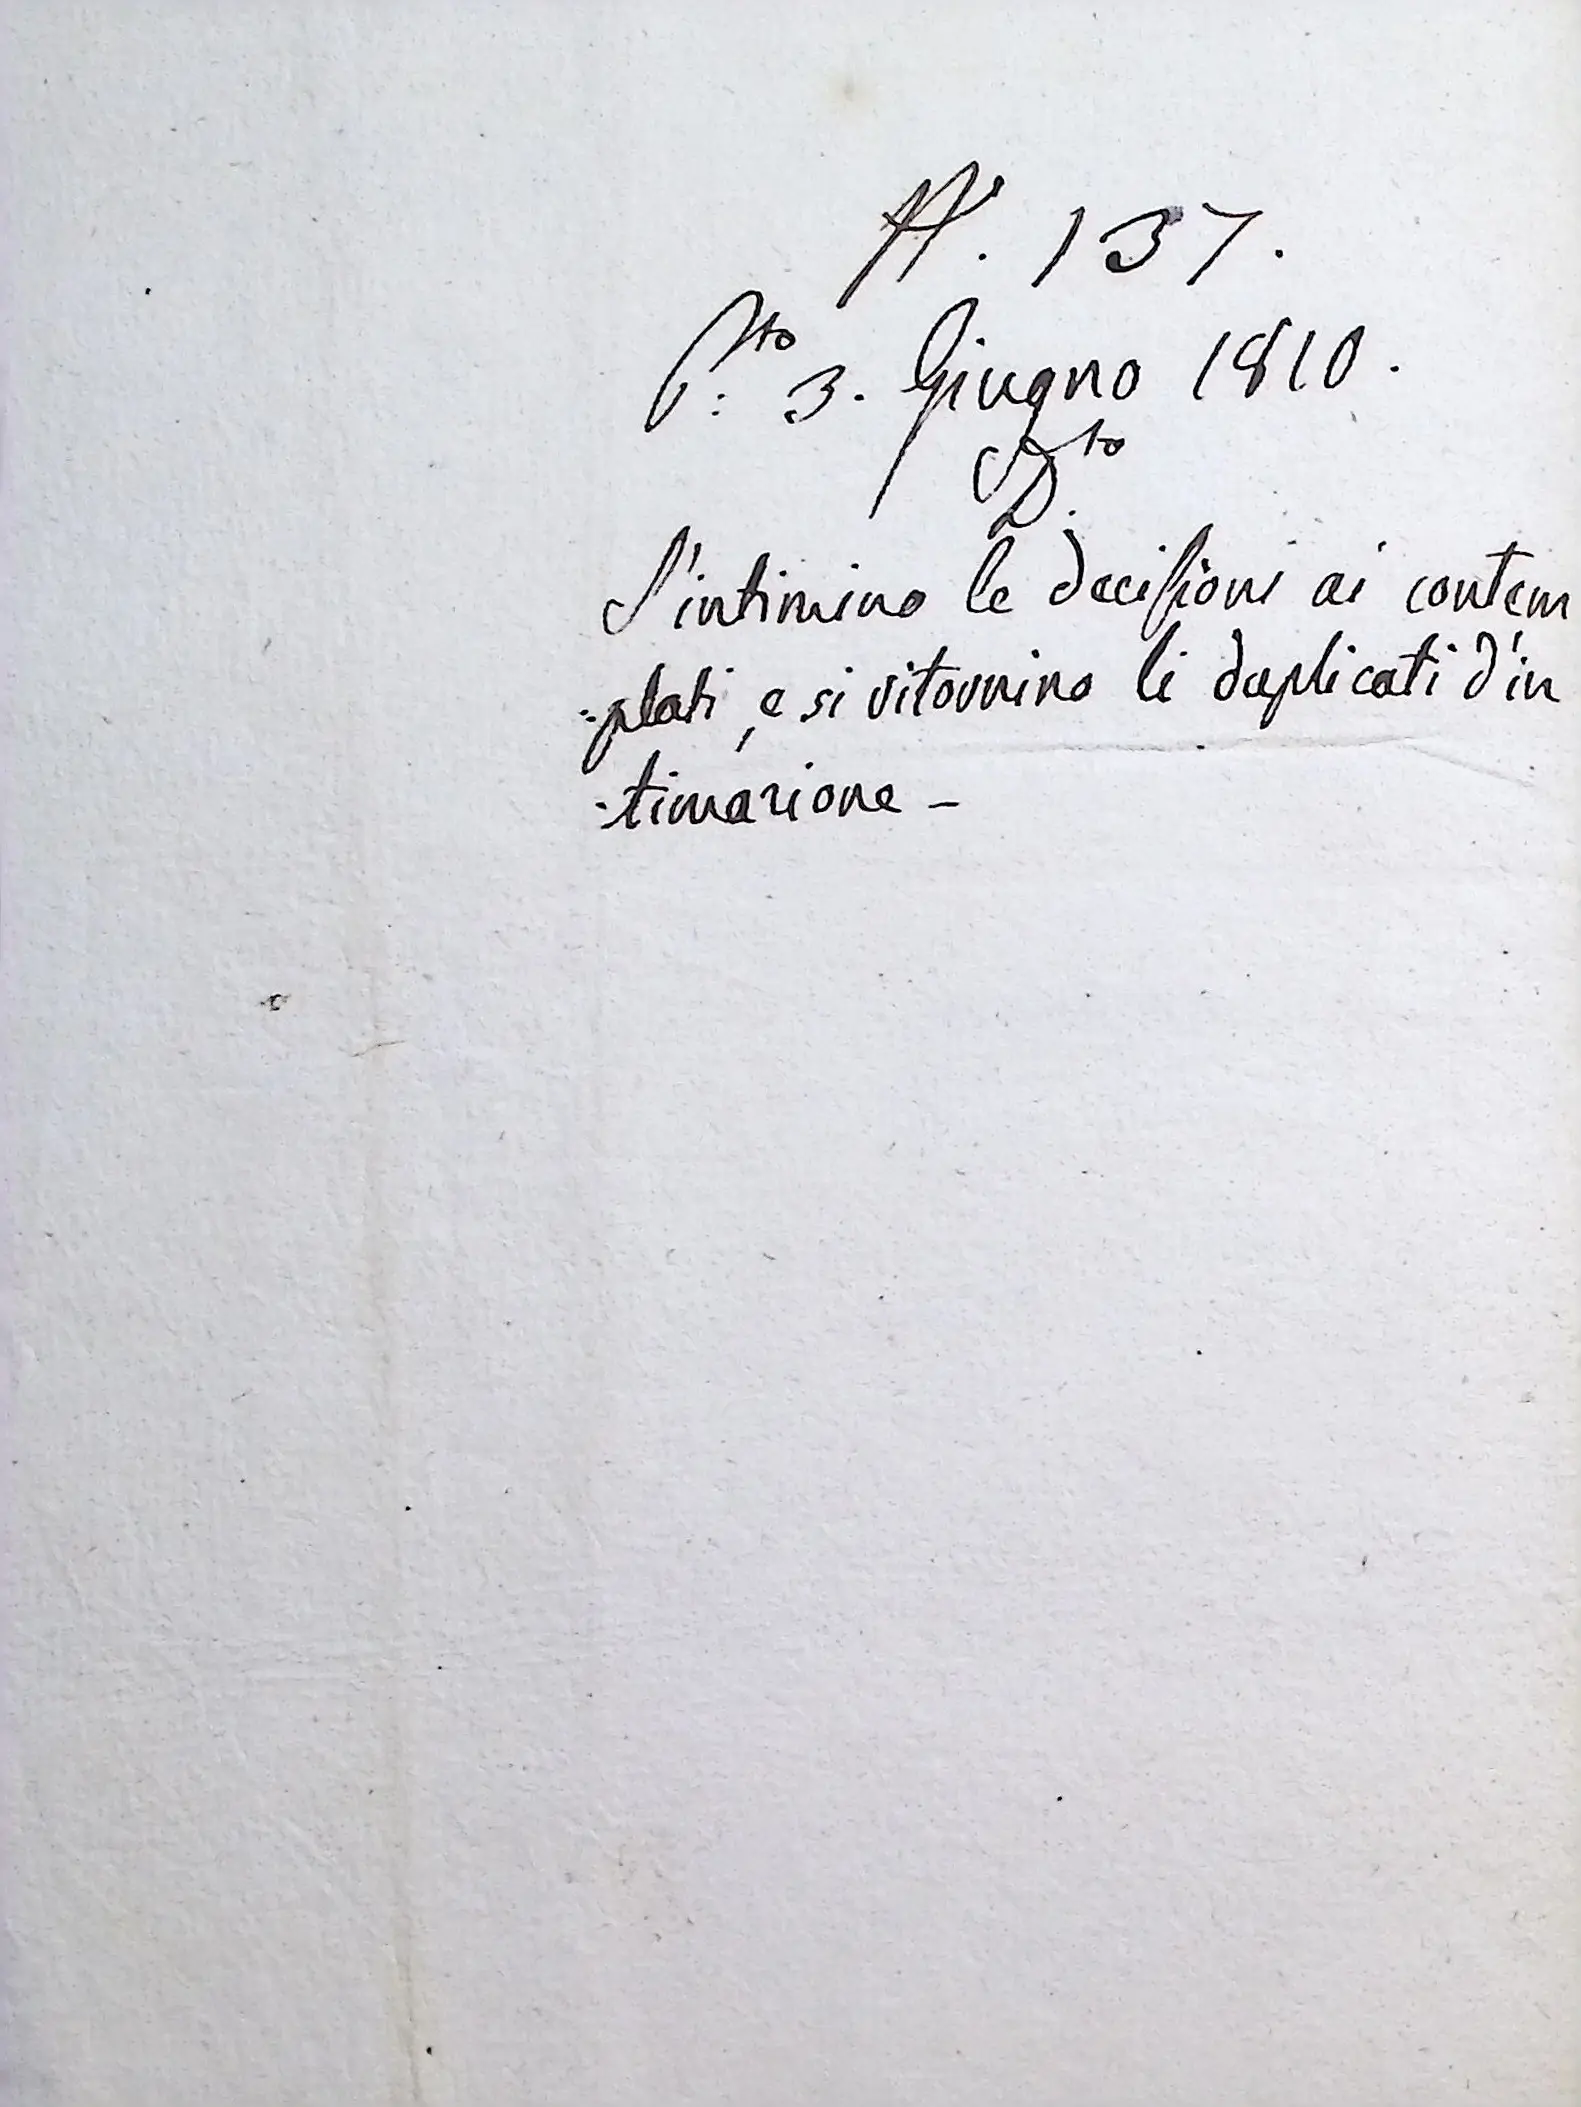 N. 137.
P.to 3. Giugno 1810.
D.to
S'intimino le decisioni ai contem
-plati, e si ritornino li duplicati d'in
-timazione -